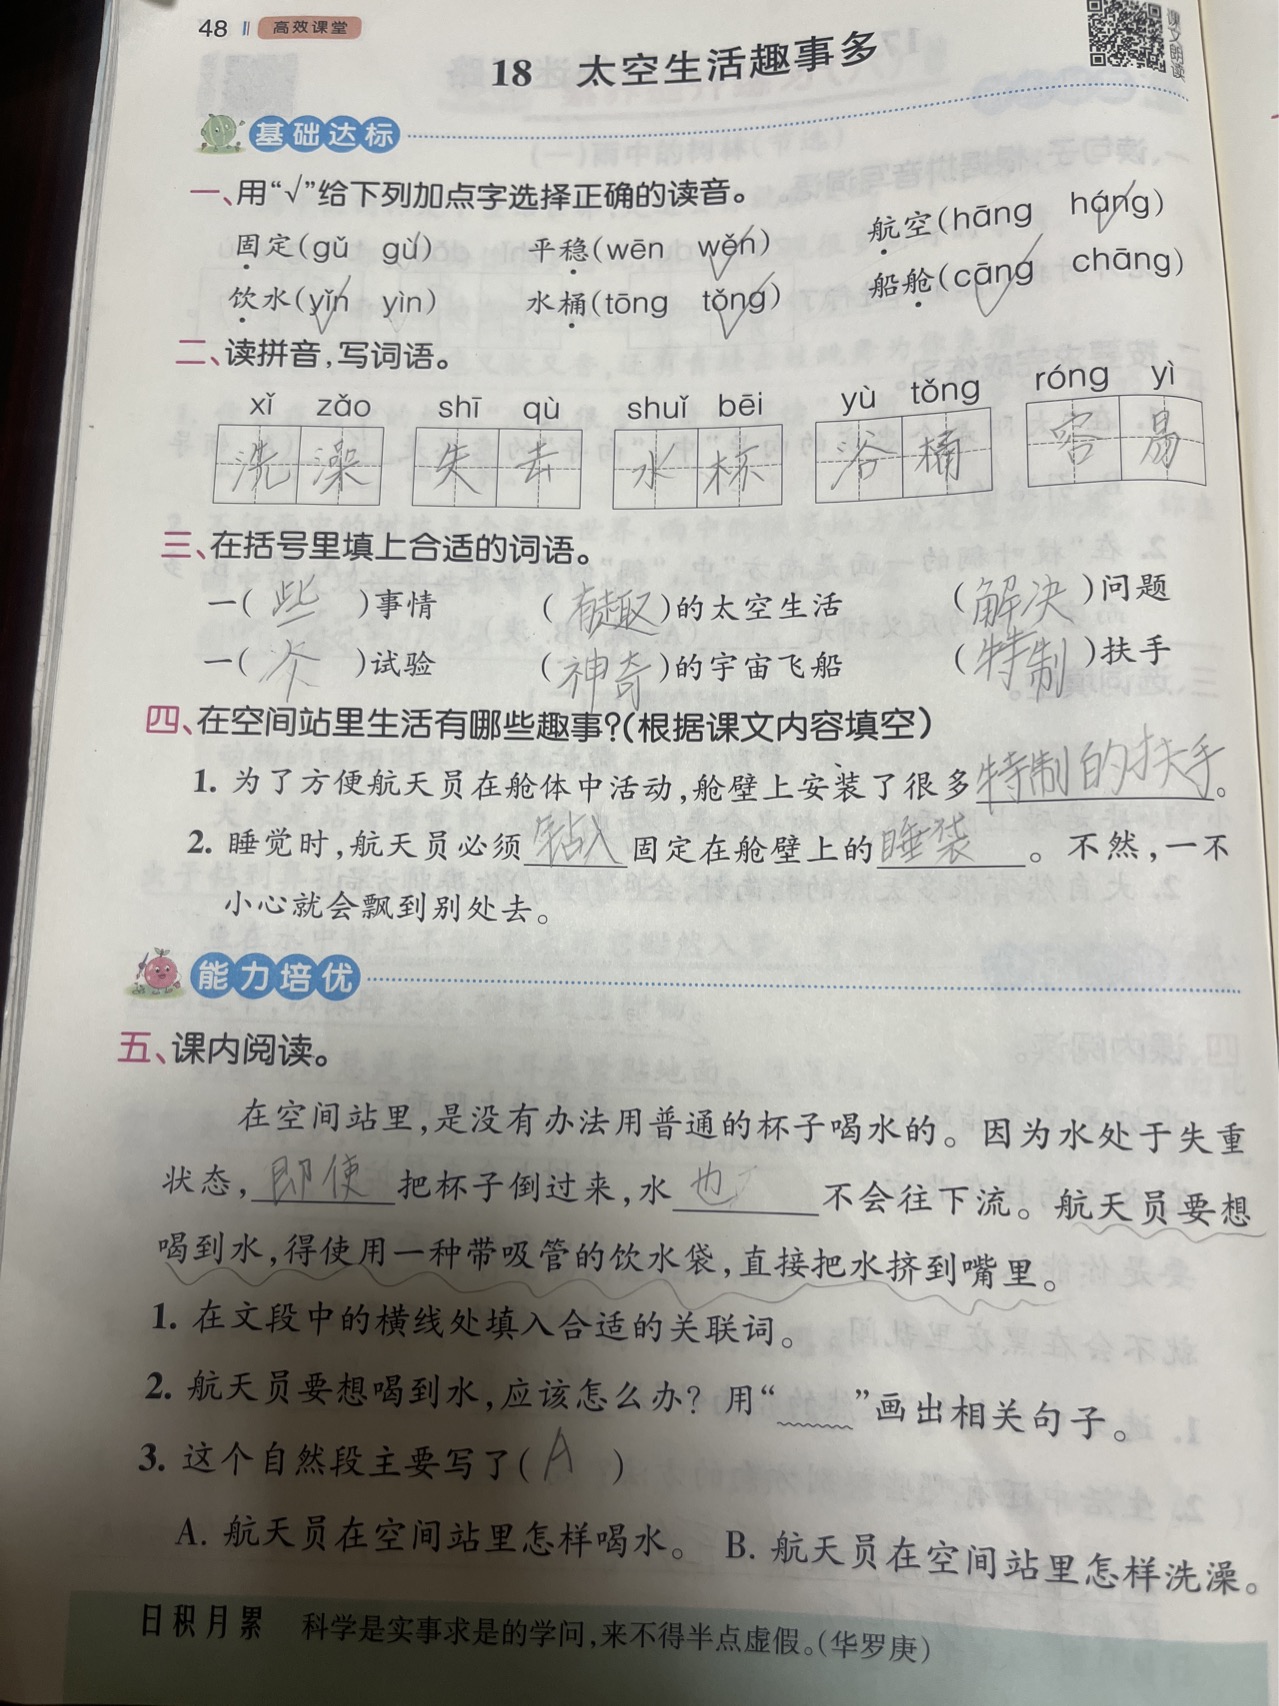 48 高效课堂
课文朗读
18 太空生活趣事多
基础达标
一、用“√”给下列加点字选择正确的读音。
固定(gǔ gù) 平稳(wēn wěn) 航空(hāng háng)
饮水(yǐn yìn) 水桶(tōng tǒng) 船舱(cāng chāng)
二、读拼音,写词语。
xǐ zǎo shī qù shuǐ bēi yù tǒng róng yì
洗澡 失去 水杯 浴桶 容易
三、在括号里填上合适的词语。
一(些)事情 (有趣)的太空生活 (解决)问题
一(次)试验 (神奇)的宇宙飞船 (特制)扶手
四、在空间站里生活有哪些趣事?(根据课文内容填空)
1. 为了方便航天员在舱体中活动,舱壁上安装了很多特制的扶手。
2. 睡觉时,航天员必须钻入固定在舱壁上的睡袋。不然,一不
小心就会飘到别处去。
能力培优
五、课内阅读。
在空间站里,是没有办法用普通的杯子喝水的。因为水处于失重
状态,即使把杯子倒过来,水也不会往下流。航天员要想
喝到水,得使用一种带吸管的饮水袋,直接把水挤到嘴里。
1. 在文段中的横线处填入合适的关联词。
2. 航天员要想喝到水,应该怎么办？用“﹏﹏”画出相关句子。
3. 这个自然段主要写了(A)
A. 航天员在空间站里怎样喝水。 B. 航天员在空间站里怎样洗澡。
日积月累 科学是实事求是的学问,来不得半点虚假。(华罗庚)